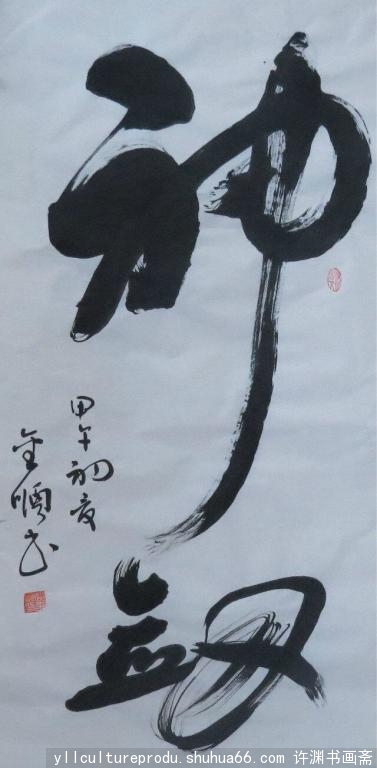 神劔
甲午初夏
金順书
yllcultureprodu.shuhua66.com 许渊书画斋